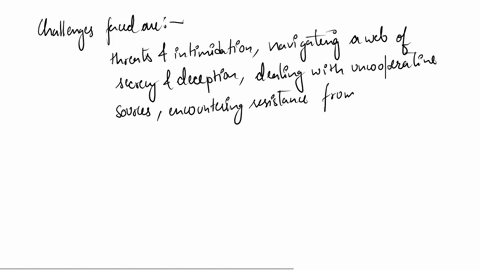 Challenges faced are:-
threats & intimidation, navigating a web of
secrecy & deception, dealing with uncooperative
sources, encountering resistance from